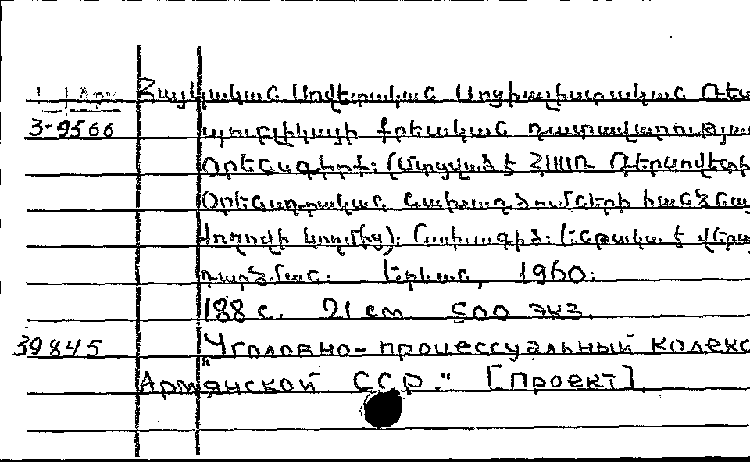 Арм Հայկական Սովետական Սոցիալիստական Ռես
3-9566 պուբլիկայի քրեական դատավարության
Օրենսգիրք: (Մտցված է ՀՍՍՌ Գերսովետի
Օրենսդրական նախագծումների հանձնա
ժողովի կողմից): Նախագիծ: (Ենթակա է վերա
դարձման: Երևան, 1960:
188 с. 21 см 500 экз.
39845 "Уголовно-процессуальный кодекс
Армянской ССР." [Проект].